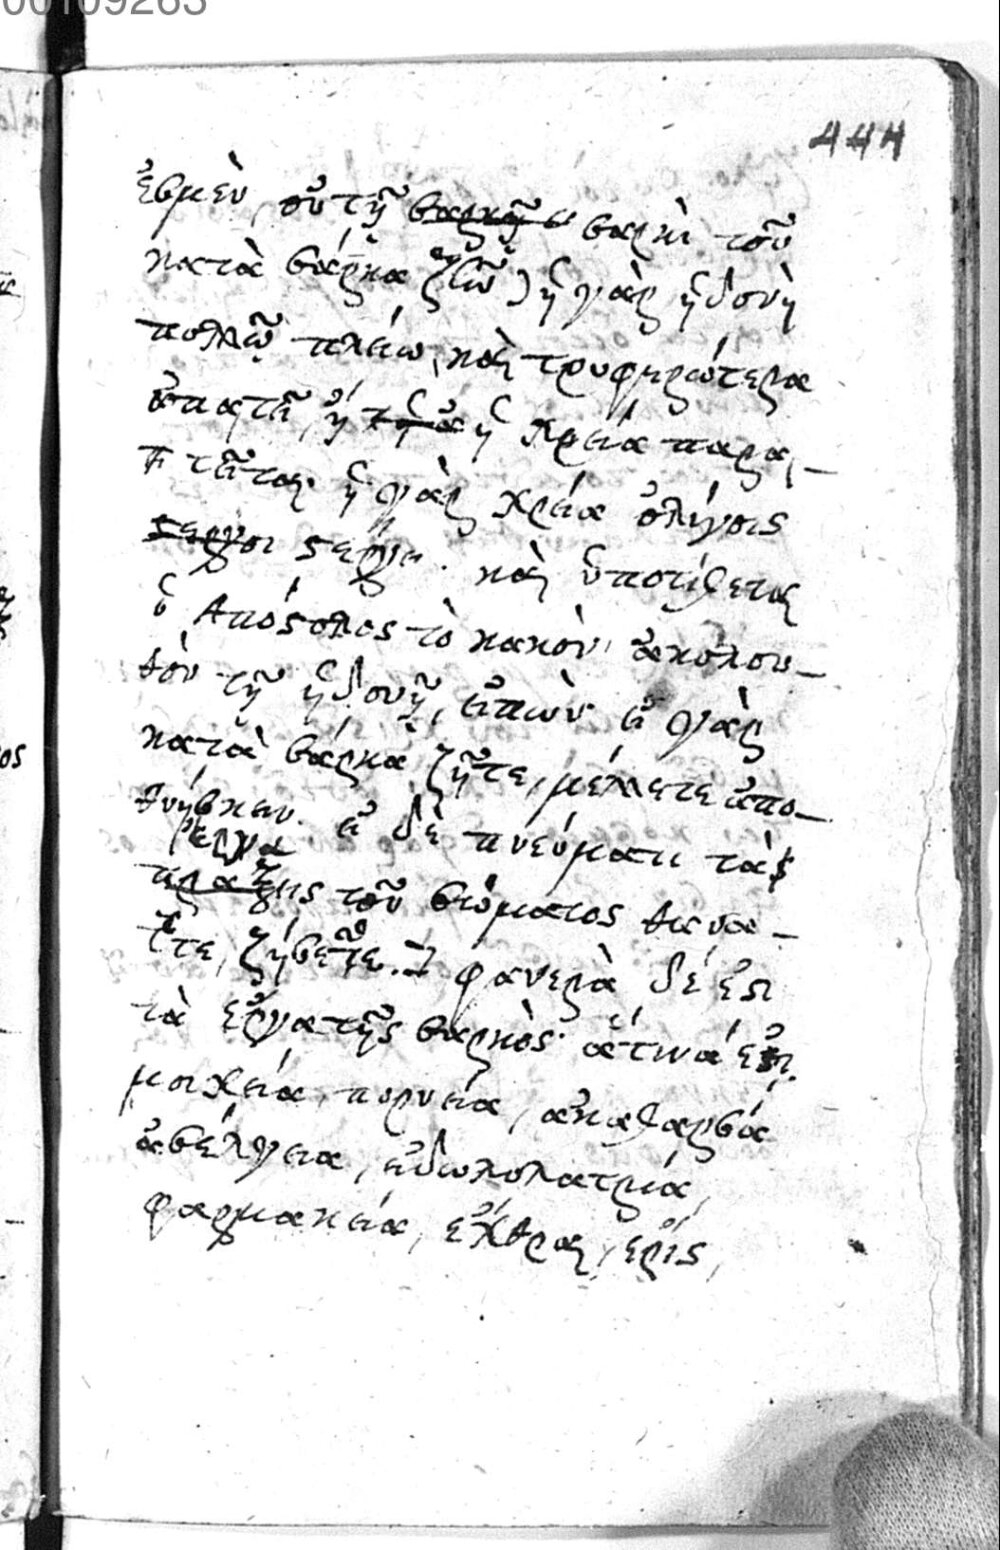 00109263
444
ἐσμὲν, οὐ τῇ σαρκὶ τοῦ
κατὰ σάρκα ζῆν) ἡ γὰρ ἡδονὴ
πολλῷ πλείω, καὶ τρυφερώτερα
ἀπαιτεῖ, ἢ ἡ χρεία παρα-
τεῖται· ἡ γὰρ χρεία ὀλίγοις
στέργει. καὶ ὑποτίθεται
ὁ Απόστολος τὸ κακὸν ἀκόλου-
θον τῇ ἡδονῇ, εἰπὼν εἰ γὰρ
κατὰ σάρκα ζῆτε, μέλλετε ἀπο-
θνήσκειν. εἰ δὲ πνεύματι τὰς
πράξεις τοῦ σώματος θανα-
τοῦτε, ζήσεσθε. φανερὰ δέ ἐστι
τὰ ἔργα τῆς σαρκὸς· ἅτινά ἐστι.
μοιχεία, πορνεία, ἀκαθαρσία
ἀσέλγεια, εἰδωλολατρεία,
φαρμακεία, ἔχθραι, ἔρις,